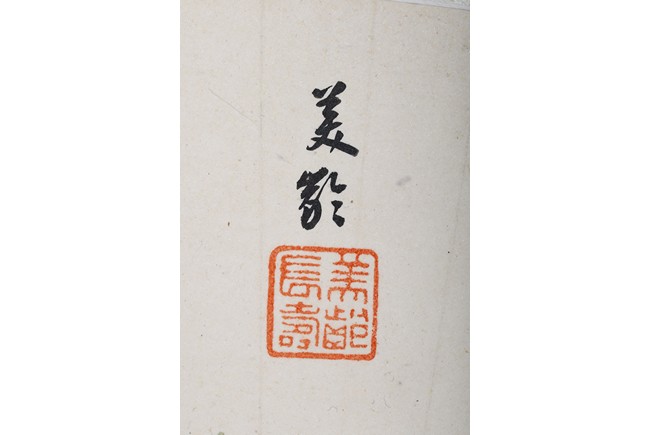 美齡
美齡
長壽